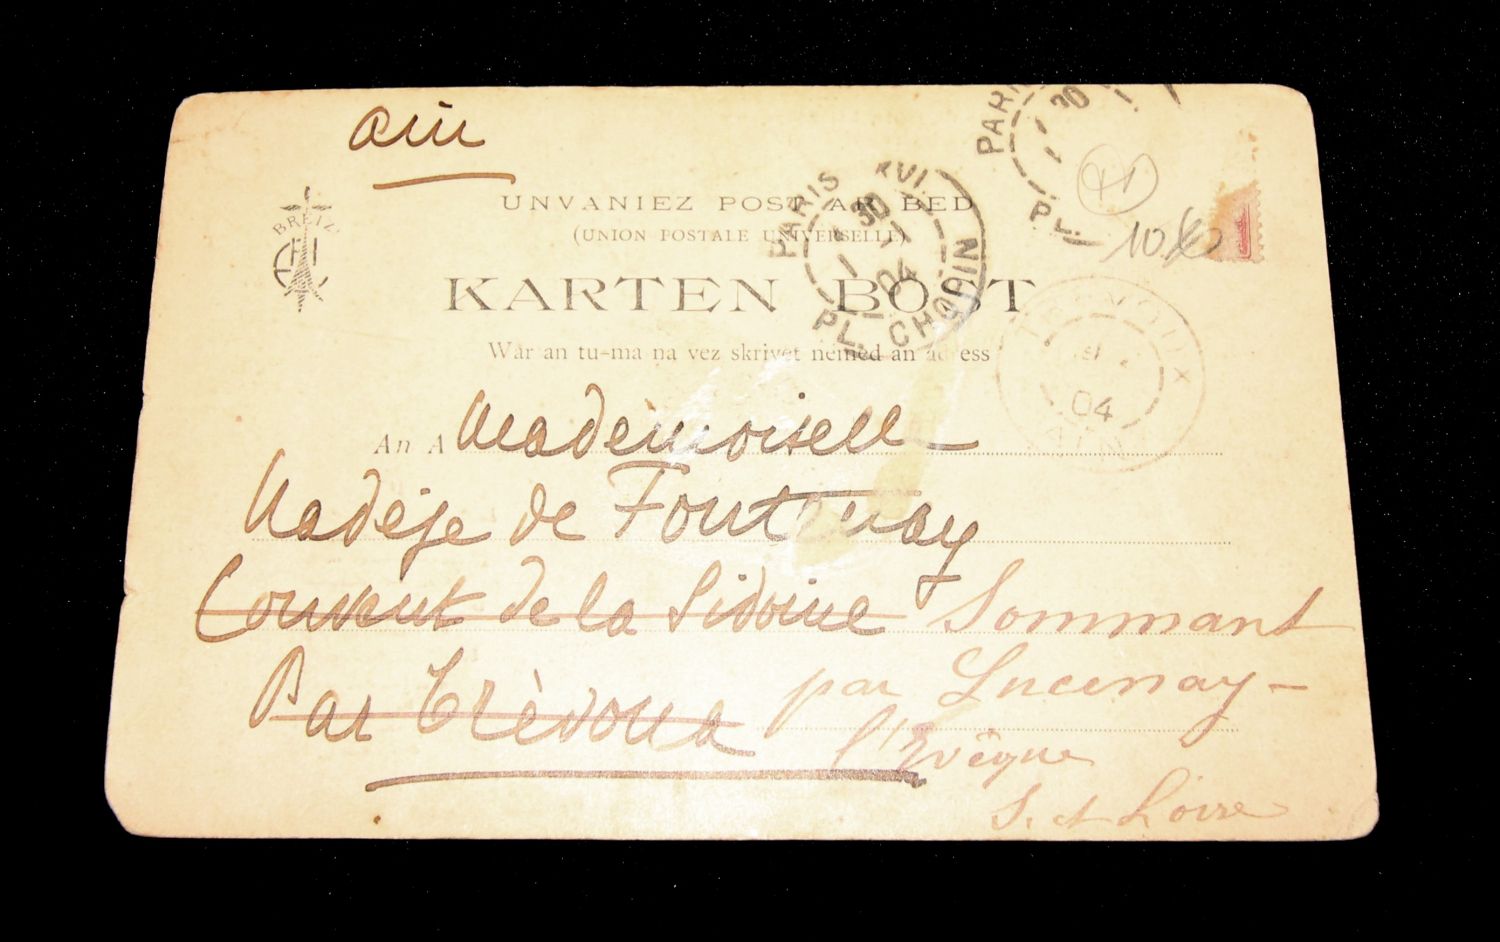 Ain
BREIZ
UNVANIEZ POST AR BED
(UNION POSTALE UNIVERSELLE)
KARTEN BOST
War an tu-ma na vez skrivet nemed an adress
PARIS XVI
30
1
04
PL. CHOPIN
PARI
30
1
PL.
TREVOUX
04
AIN
An A Mademoiselle
Nadèje de Fontenay
Couvent de la Sidoine Sommant
Par Trèvoux par Lucenay-
l'Evêque
S. et Loire